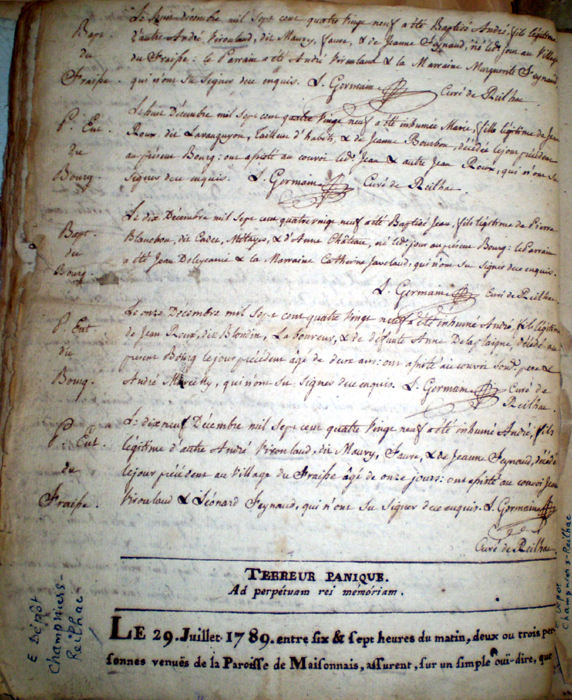 Bapt.
du
Fraisse.
Le Sept décembre mil sept cent quatre vingt neuf a été Baptisé André, fils légitime
d'autre André Virouland, dit Maury, faure, & de Jeanne Feynaud, né led. jour au Village
du Fraisse: le Parrain a été André Virouland & la Marraine Marguerite Feynaud
qui n'ont su signer de ce enquis. L. Germain Curé de Reilhac.
P. Ent.
du
Bourg
Décembre mil sept cent quatre vingt neuf a été inhumée Marie, fille légitime de Jean
Roux dit Laranguyon, tailleur d'habits, & de Jeanne Bourbon, décédée le jour précédent
au présent Bourg: ont assisté au convoi led. Jean & autre Jean Roux, qui n'ont su
signer de ce enquis. L. Germain Curé de Reilhac.
Bapt.
du
Bourg.
Le dix Décembre mil sept cent quatre vingt neuf a été Baptisé Jean, fils légitime de Pierre
Blanchon, dit Cadet, Métayer, & d'Anne Château, né led. jour au présent Bourg: le Parrain
a été Jean & la Marraine Catherine qui n'ont su signer de ce enquis.
L. Germain Curé de Reilhac.
P. Ent.
du
Bourg.
Le onze Décembre mil sept cent quatre vingt neuf a été inhumé André, fils légitime
de Jean Roux, dit Blondin, Laboureur, & de défunte Anne Delaplaigne, décédé au
présent Bourg le jour précédent âgé de deux ans: ont assisté au convoi sond. père &
André qui n'ont su signer de ce enquis. L. Germain Curé de
Reilhac.
P. Ent.
du
Fraisse.
Le dixneuf Décembre mil sept cent quatre vingt neuf a été inhumé André, fils
légitime d'autre André Virouland, dit Maury, Faure, & de Jeanne Feynaud, décédé
le jour précédent au Village du Fraisse âgé de onze jours: ont assisté au convoi Jean
Virouland & Léonard Feynaud, qui n'ont su signer de ce enquis. L. Germain
Curé de Reilhac.
TERREUR PANIQUE.
Ad perpétuam rei mémoriam.
LE 29. Juillet 1789. entre six & sept heures du matin, deux ou trois per-
sonnes venuës de la Paroisse de Maisonnais, assurent, sur un simple ouï-dire, que
E Dépôt
Champniers-
Reilhac
E Dépôt
Champniers-Reilhac